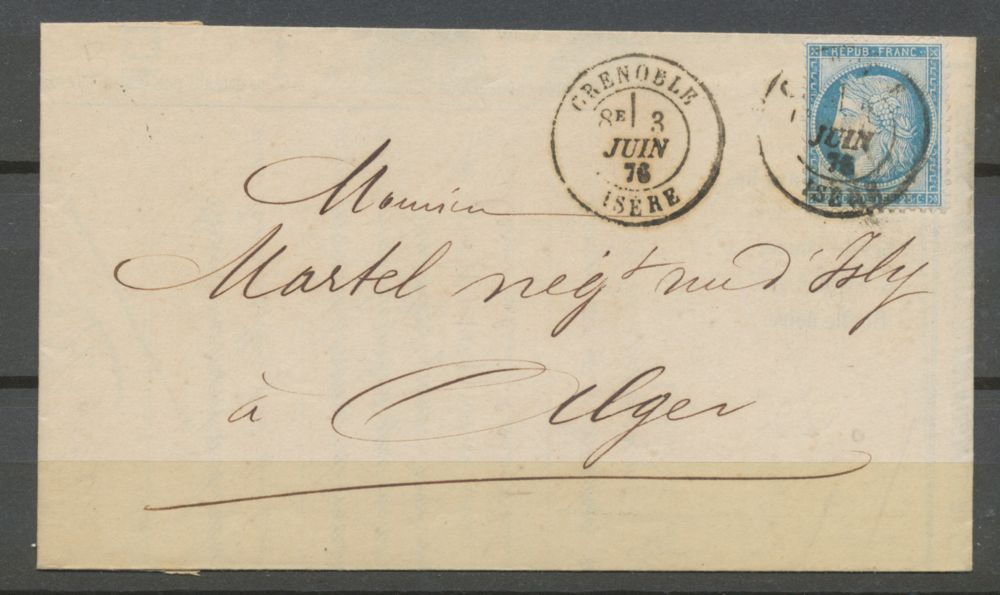 REPUB · FRANC
GRENOBLE
8E 3
JUIN
76
ISÈRE
JUIN
76
ISÈRE
25 C.
Monsieur
Martel negt rue d'Isly
à Alger